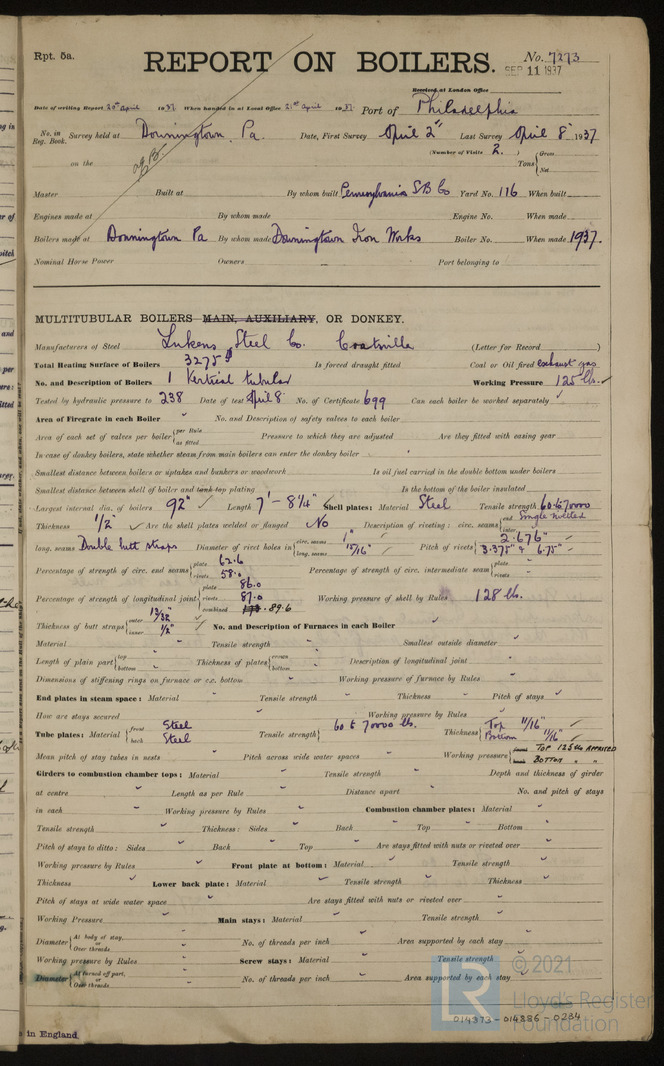 Rpt. 5a.
REPORT ON BOILERS.
No. 7273
SEP 11 1937
Received at London Office
Date of writing Report 20th April 1937 When handed in at Local Office 21st April 1937 Port of Philadelphia
No. in Reg. Book. Survey held at Downingtown, Pa. Date, First Survey April 2nd Last Survey April 8th 1937
(Number of Visits 2.)
on the Tons { Gross Net
Master Built at By whom built Pennsylvania S.B. Co Yard No. 116 When built
Engines made at By whom made Engine No. When made
Boilers made at Downingtown Pa By whom made Downingtown Iron Works Boiler No. When made 1937.
Nominal Horse Power Owners Port belonging to
MULTITUBULAR BOILERS MAIN, AUXILIARY, OR DONKEY.
Manufacturers of Steel Lukens Steel Co. Coatsville (Letter for Record )
Total Heating Surface of Boilers 3275 Is forced draught fitted Coal or Oil fired exhaust gas
No. and Description of Boilers 1 Vertical tubular Working Pressure 125 lbs.
Tested by hydraulic pressure to 238 Date of test April 8 No. of Certificate 699 Can each boiler be worked separately
Area of Firegrate in each Boiler No. and Description of safety valves to each boiler
Area of each set of valves per boiler { per Rule as fitted Pressure to which they are adjusted Are they fitted with easing gear
In case of donkey boilers, state whether steam from main boilers can enter the donkey boiler
Smallest distance between boilers or uptakes and bunkers or woodwork Is oil fuel carried in the double bottom under boilers
Smallest distance between shell of boiler and tank top plating Is the bottom of the boiler insulated
Largest internal dia. of boilers 92" Length 7' - 8 1/4" Shell plates: Material Steel Tensile strength 60 to 70000
Thickness 1/2" Are the shell plates welded or flanged No Description of riveting: circ. seams { end Single riveted inter.
long. seams Double butt straps Diameter of rivet holes in { circ. seams 1" long. seams 15/16" Pitch of rivets { 2.676" 3.375" & 6.75"
Percentage of strength of circ. end seams { plate 62.6 rivets 58.0 Percentage of strength of circ. intermediate seam { plate rivets
Percentage of strength of longitudinal joint { plate 86.0 rivets 87.0 combined 89.6 Working pressure of shell by Rules 128 lbs.
Thickness of butt straps { outer 13/32" inner 1/2" No. and Description of Furnaces in each Boiler
Material Tensile strength Smallest outside diameter
Length of plain part { top bottom Thickness of plates { crown bottom Description of longitudinal joint
Dimensions of stiffening rings on furnace or c.c. bottom Working pressure of furnace by Rules
End plates in steam space: Material Tensile strength Thickness Pitch of stays
How are stays secured Working pressure by Rules
Tube plates: Material { front Steel back Steel Tensile strength { 60 to 70000 lbs. Thickness { Top 11/16" Bottom 11/16"
Mean pitch of stay tubes in nests Pitch across wide water spaces Working pressure { front TOP 125 lbs APPROVED back BOTTOM " "
Girders to combustion chamber tops: Material Tensile strength Depth and thickness of girder
at centre Length as per Rule Distance apart No. and pitch of stays
in each Working pressure by Rules Combustion chamber plates: Material
Tensile strength Thickness: Sides Back Top Bottom
Pitch of stays to ditto: Sides Back Top Are stays fitted with nuts or riveted over
Working pressure by Rules Front plate at bottom: Material Tensile strength
Thickness Lower back plate: Material Tensile strength Thickness
Pitch of stays at wide water space Are stays fitted with nuts or riveted over
Working Pressure Main stays: Material Tensile strength
Diameter { At body of stay, or Over threads No. of threads per inch Area supported by each stay
Working pressure by Rules Screw stays: Material Tensile strength
Diameter { At turned off part, or Over threads No. of threads per inch Area supported by each stay
© 2021
Lloyd's Register
Foundation
014373-014386-0234
in England.